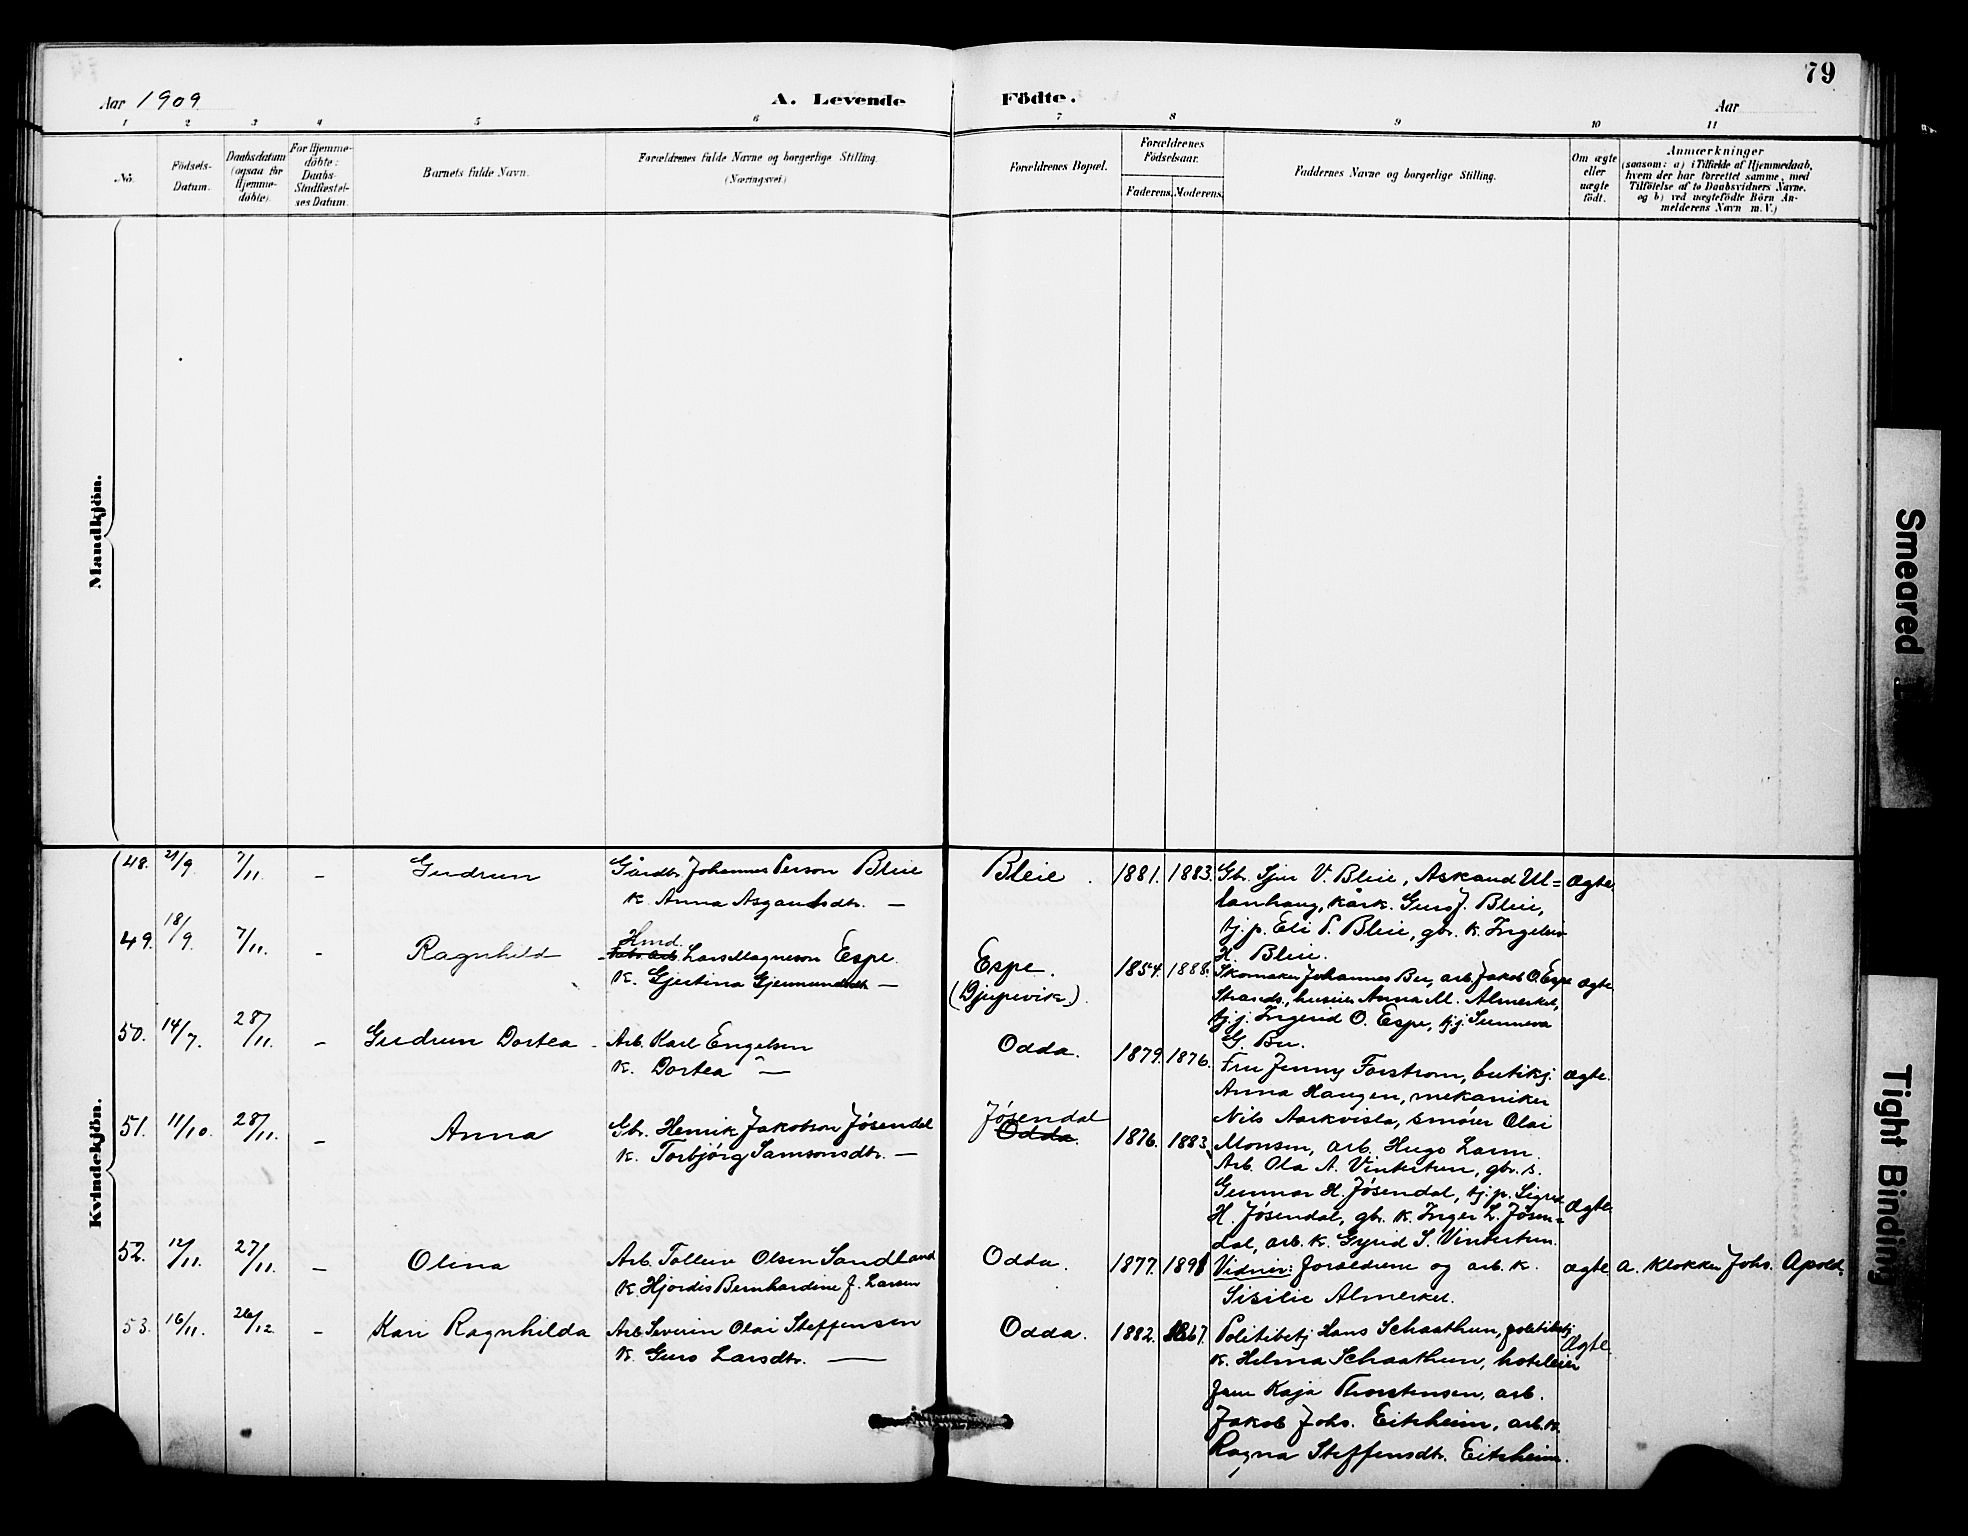 79
Aar 1909
A. Levende Födte.
Aar
1 2 3 4 5 6 7 8 9 10 11
No.
Födsels-
Datum.
Daabsdatum
(ogsaa for
Hjemme-
döbte).
For Hjemme-
döbte:
Daabs-
Stadfæstel-
ses Datum.
Barnets fulde Navn.
Forældrenes fulde Navne og borgerlige Stilling.
(Næringsvei)
Forældrenes Bopæl.
Forældrenes
Födselsaar.
Faderens. Moderens.
Faddernes Navne og borgerlige Stilling.
Om ægte
eller
uægte
födt.
Anmærkninger
(saasom: a) i Tilfælde af Hjemmedaab,
hvem der har forrettet samme, med
Tilföielse af to Daabsvidners Navne.
og b) ved uægtefödte Börn An-
melderens Navn m. V.)
Mandkjön.
Kvindekjön.
48. 21/9. 7/11. - Gudrun
Gårdbr. Johannes Person Bleie
K. Anna Asgautsdtr. —
Bleie. 1881. 1883.
Gbr. Sjur V. Bleie, Askaud Ul=
lanhaug, kårk. Guro J. Bleie,
tj.p. Eli P. Bleie, gbr. k. Ingeleiv
H. Bleie.
Ægte
49. 18/9. 7/11. - Ragnhild
Hmd.
Lars Magneson Espe.
K. Gjertina Gjermundsdtr —
Espe.
(Djupevik).
1854. 1888.
Skomaker Johannes Bu, arb. Jakob O. Espe
Strands., husier Anna M. Almerket,
tj.j. Ingerid O. Espe, tj.j. Sunneva
G. Bu.
Ægte
50. 14/7. 28/11. - Gudrun Dortea
Arb. Karl Engelsen
K. Dortea —"—
Odda. 1879. 1876.
Fru Jenny Forstrom, butikj.
Anna Haugen, mekaniker
Nils Aarkvisla, smører Olai
Monsen, arb. Hugo Larm.
Ægte.
51. 11/10. 28/11. - Anna
Gbr. Henrik Jakobson Jøsendal
K. Torbjørg Samsonsdtr. —
Jøsendal
Odda.
1876. 1883.
Arb. Ola A. Vintertun, gbr. s.
Gunnar H. Jøsendal, tj.p. Sigrid
H. Jøsendal, gbr. k. Inger L. Jøsen=
dal, arb. k. Gyrid S. Vintertun.
Ægte
52. 12/11. 27/11. - Olina
Arb. Tolleiv Olsen Sandland
K. Hjordis Bernhardine J. Larsen
Odda. 1877. 1891
Vidner: forældrene og arb. k.
Sisilie Almerket.
Ægte
a. Klokker Johs. Apold.
53. 16/11. 26/12. - Kari Ragnhilda
Arb. Severin Olai Steffensen
K. Guro Larsdtr. —
Odda. 1882.
Politibetj Hans Schaathun, politibetj
k. Helma Schaathun, hoteleier
frue Kaja Thorstensen, arb.
Jakob Johs. Eitrheim, arb. k.
Ragna Steffensdtr. Eitrheim.
Ægte
Smeared
Tight Binding